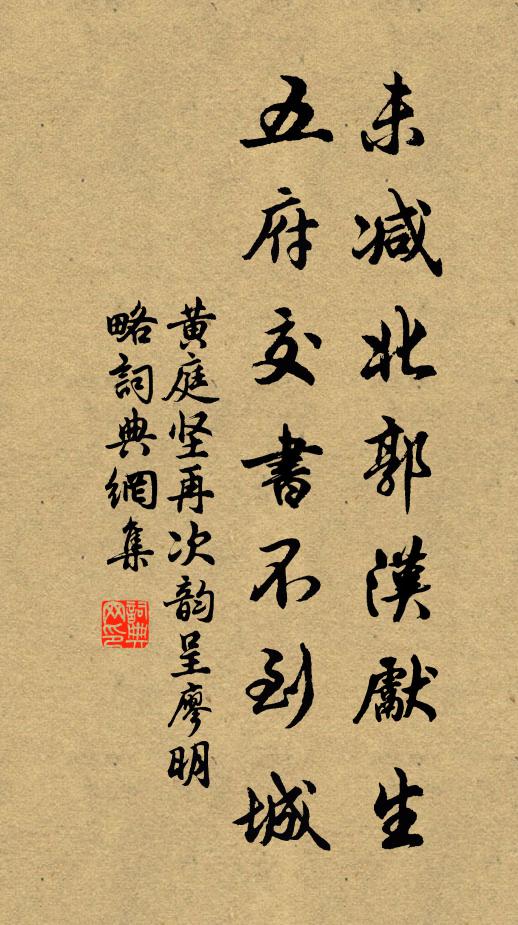 未减北郭漢獻生
五府交書不到城
黃庭坚再次韵呈廖明
略詞典網集
詞典
网印